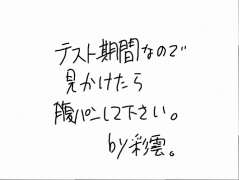 テスト期間なので
見かけたら
腹パンして下さい。
by彩雲。